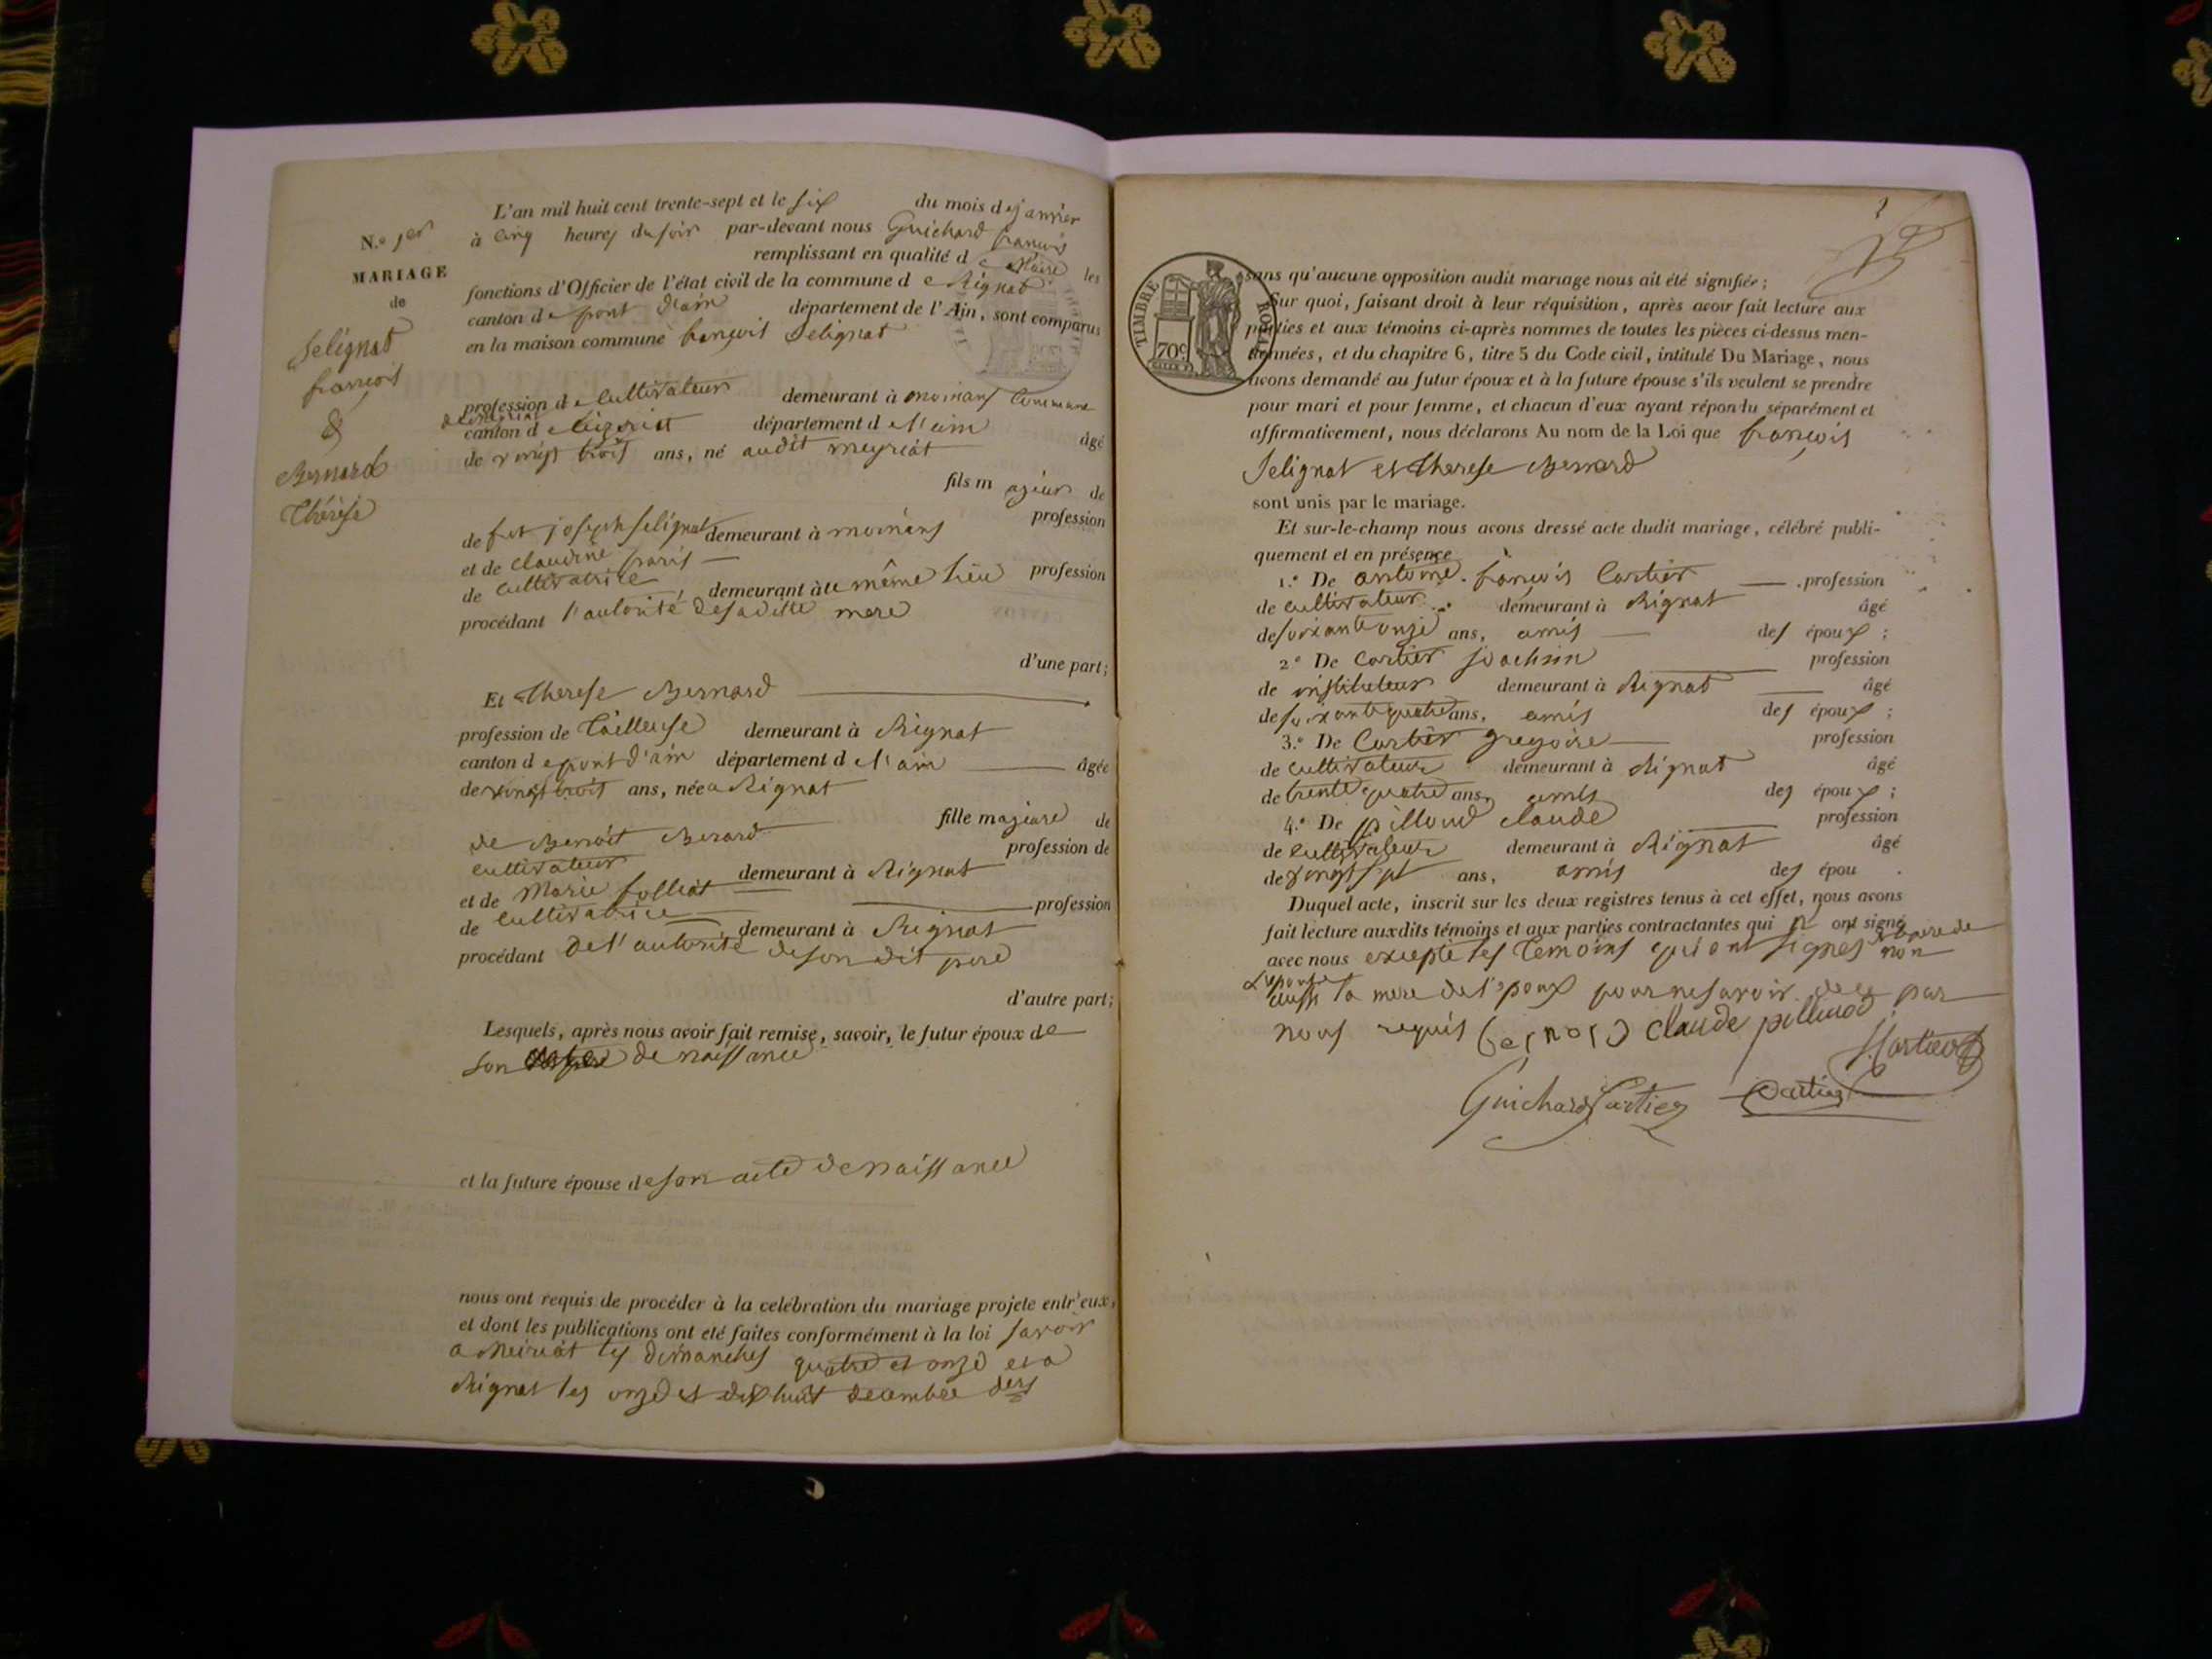 N.o 1er
MARIAGE
de
Selignat
françois
&
Bernard
Thérèse
L'an mil huit cent trente-sept et le six du mois de janvier
à cinq heures du soir par-devant nous Guichard françois
remplissant en qualité de Maire les
fonctions d'Officier de l'état civil de la commune de Rignat
canton de pont d'ain département de l'Ain, sont comparus
en la maison commune françois Selignat
profession de Cultivateur demeurant à moinans Commune
canton de département de l'ain âgé
de vingt trois ans, né audit meyriat
fils majeur de
de feu joseph selignat demeurant à moinans profession
et de Claudine paris
de cultivatrice demeurant à le même lieu profession
procédant l'autorité de sa ditte mere
d'une part;
Et Therese Bernard
profession de Tailleuse demeurant à Rignat
canton de pont d'ain département de l'ain âgée
de vingt trois ans, née a Rignat
fille majeure de
de Benoit Berard profession de
cultivateur demeurant à Rignat
et de Marie folliat profession
de cultivatrice demeurant à Rignat
procédant De l'autorité de son dit pere
d'autre part;
Lesquels, après nous avoir fait remise, savoir, le futur époux de
son de naissance
et la future épouse de son acte de naissance
nous ont requis de procéder à la celébration du mariage projete entr'eux,
et dont les publications ont eté faites conformément à la loi savoir
a Meiriat les dimanches quatre et onze et a
Rignat les onze et dix huit decembre ders
TIMBRE ROYAL
70c
sans qu'aucune opposition audit mariage nous ait été signifiée;
Sur quoi, faisant droit à leur réquisition, après avoir fait lecture aux
parties et aux témoins ci-après nommes de toutes les pièces ci-dessus men-
tionnées, et du chapitre 6, titre 5 du Code civil, intitulé Du Mariage, nous
avons demandé au futur époux et à la future épouse s'ils veulent se prendre
pour mari et pour femme, et chacun d'eux ayant répondu séparément et
affirmativement, nous déclarons Au nom de la Loi que françois
Selignat et Therese Bernard
sont unis par le mariage.
Et sur-le-champ nous avons dressé acte dudit mariage, célébré publi-
quement et en présence
1.° De antoine françois Cartier profession
de cultivateur demeurant à Rignat âgé
de soixante onze ans, amis des époux;
2° De Cartier joachim profession
de instituteur demeurant à Rignat âgé
de soixante quatre ans, amis des époux;
3.° De Cartier gregoire profession
de cultivateur demeurant à Rignat âgé
de trente quatre ans, amis des époux;
4.° De pilloud claude profession
de cultivateur demeurant à Rignat âgé
de vingt sept ans, amis des épou
Duquel acte, inscrit sur les deux registres tenus à cet effet, nous avons
fait lecture auxdits témoins et aux parties contractantes qui n' ont signé
avec nous excepté les Temoins qui ont signés & le pere de non
L'epouse
aussi la mere de l'epoux pour ne savoir de ce par
nous requis bernard claude pilloud
J Cartier
Guichard Cartier Cartier